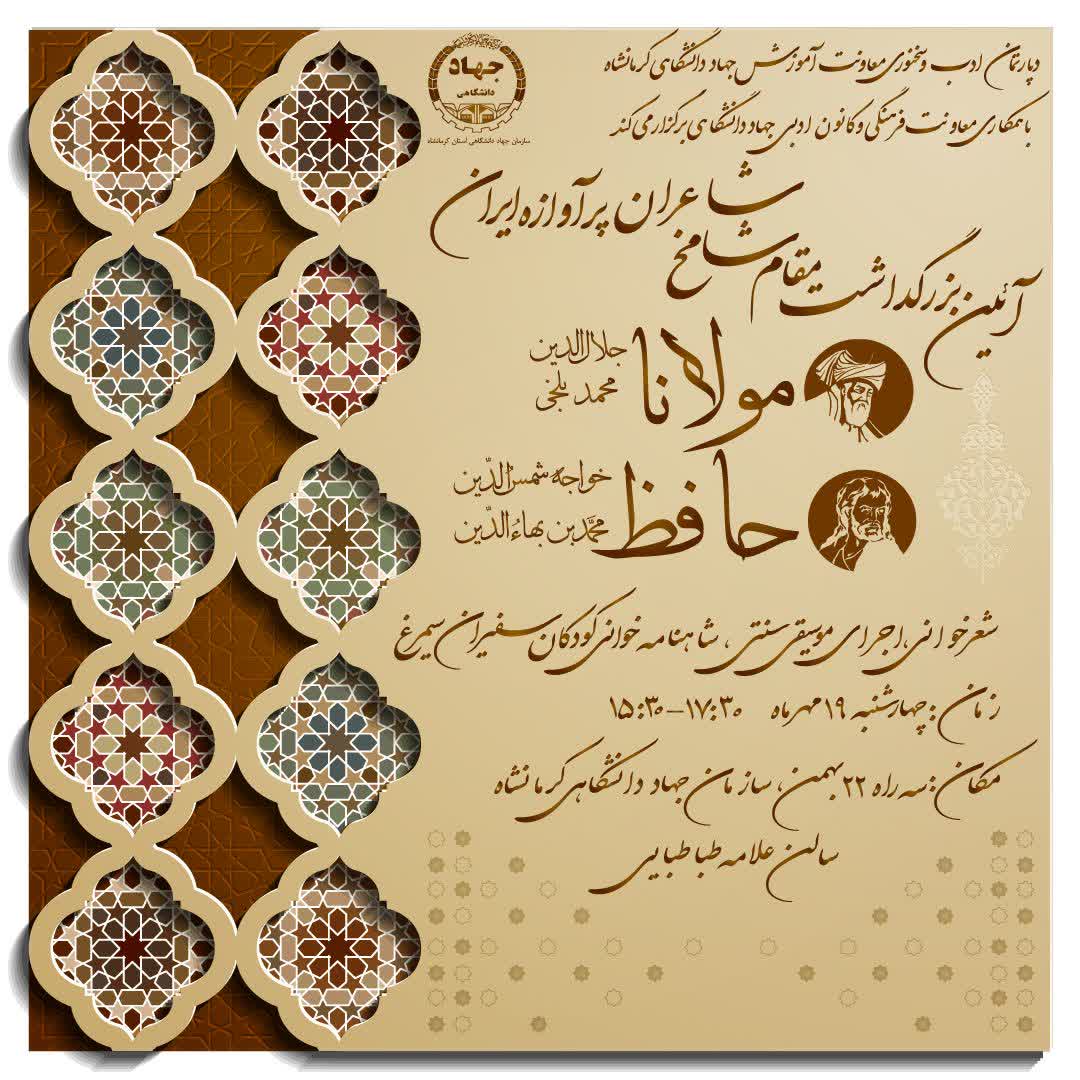 دپارتمان ادب و سخنوری معاونت آموزش جهاد دانشگاهی کرمانشاه
با همکاری معاونت فرهنگی و کانون ادبی جهاد دانشگاهی برگزار می کند
جهاد
دانشگاهی
سازمان جهاد دانشگاهی استان کرمانشاه
آئین بزرگداشت مقام شامخ
شاعران پرآوازه ایران
مولانا
جلال الدین
محمد بلخی
حافظ
خواجه شمس الدّین
محمّد بن بهاءُ الدّین
شعرخوانی، اجرای موسیقی سنتی، شاهنامه خوانی کودکان سفیران سیمرغ
زمان: چهارشنبه ۱۹ مهرماه ۱۷:۳۰-۱۵:۳۰
مکان: سه راه ۲۲ بهمن، سازمان جهاد دانشگاهی کرمانشاه
سالن علامه طباطبایی